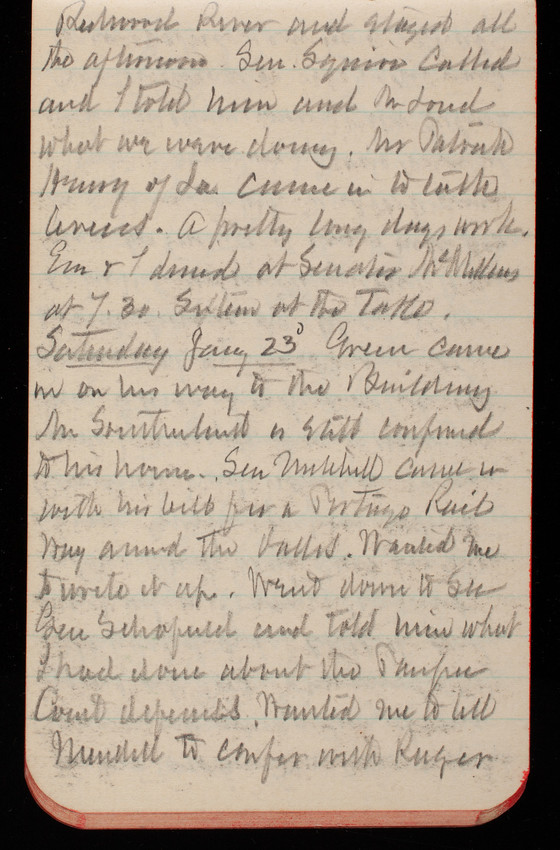 Redwood River and stayed all
the afternoon. Sen. Squire called
and I told him and Mr Loud
what we were doing. Mr Patrick
Henry of La. came in to talk
levees. A pretty long days work.
Em & I dined at Senator McMillans
at 7.30. Sixteen at the Table.
Saturday Jany 23d Green came
in on his way to the Building
Mr Southerland is still confined
to his home. Sen Mitchell came in
with his bill for a Portage Rail
way around the Dalles. Wanted me
to write it up. Went down to See
Gen Schofield and told him what
I had done about the
Coast defenses. Wanted me to tell
Mendell to confer with Ruger